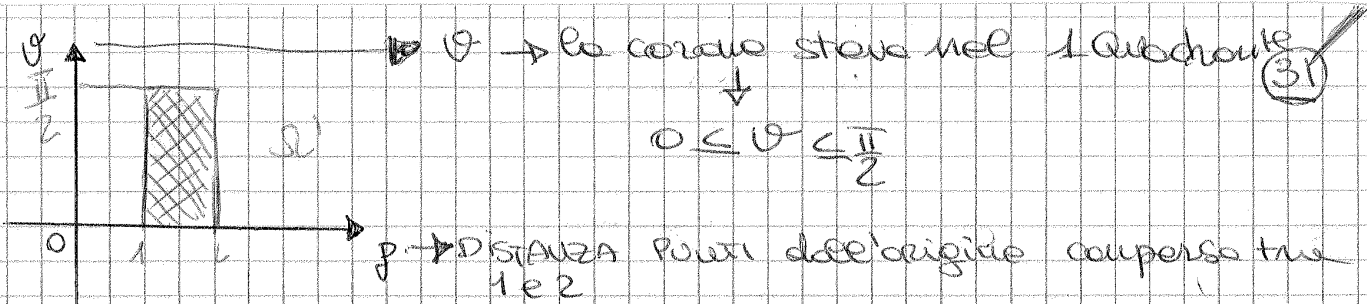 ϑ → la corona stava nel 1 Quadrante
31
π/2
Ω'
0 ≤ ϑ ≤ π/2
0 1 2 ρ → DISTANZA PUNTI dall'origine compresa tra
1 e 2